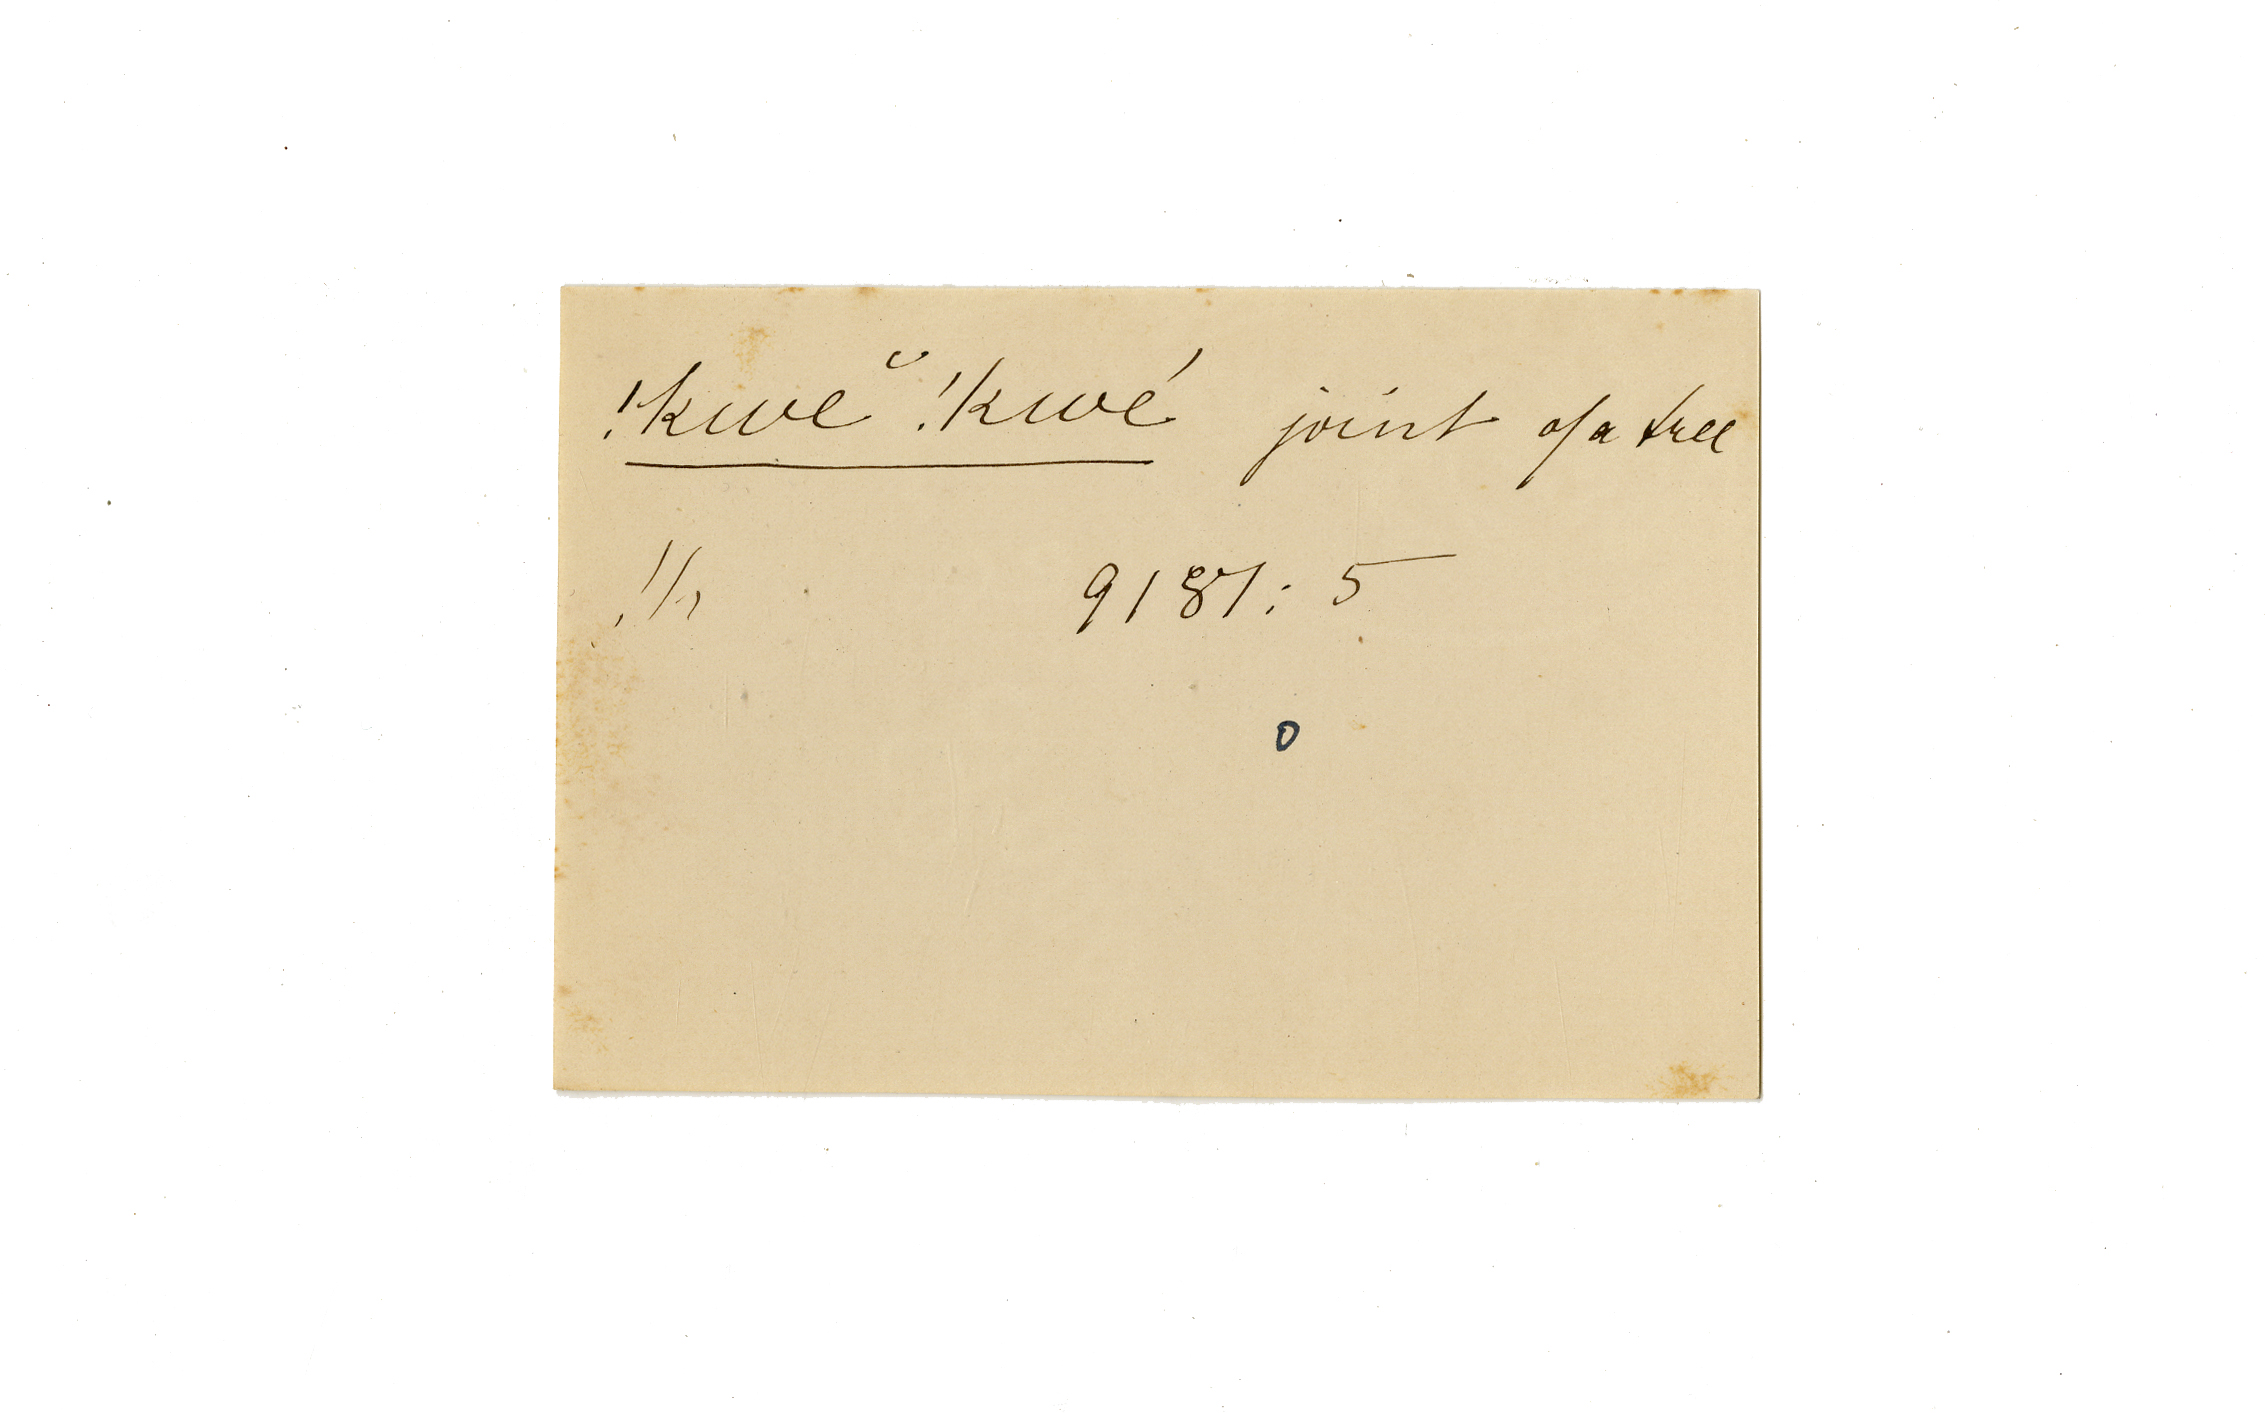 !kwĕ !kwé joint of a tree
!h 9187: 5
0